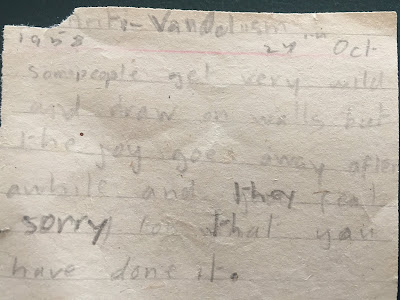 Vandalism
1958 24th Oct
somepeople get very wild
and draw on walls but
the joy goes away after
awhile and they
sorry that you
have done it.